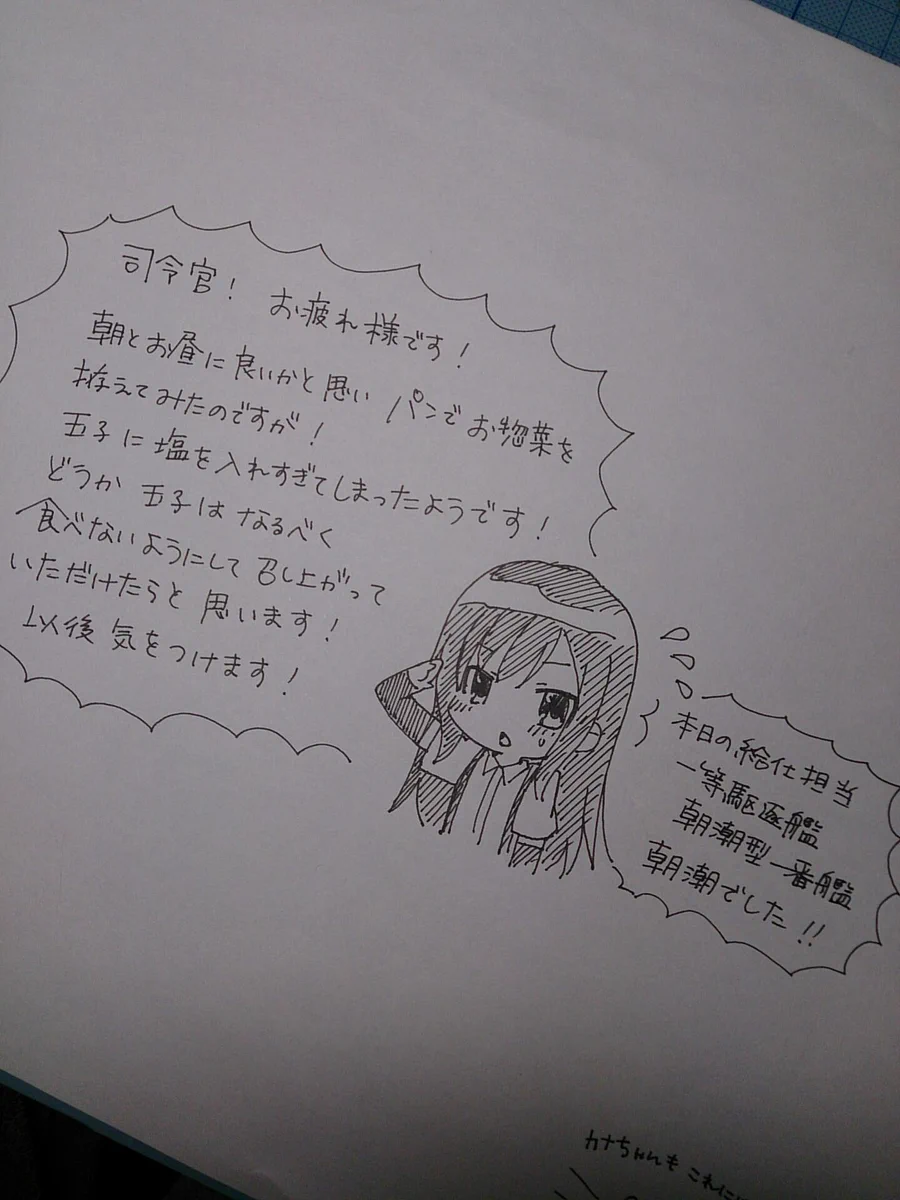 司令官! お疲れ様です!
朝とお昼に良いかと思い パンでお惣菜を
拵えてみたのですが!
玉子に塩を入れすぎてしまったようです!
どうか 玉子はなるべく
食べないようにして召し上がって
いただけたらと 思います!
以後気をつけます!
本日の給仕担当
一等駆逐艦
朝潮型一番艦
朝潮でした!!
カナちゃんもこれに